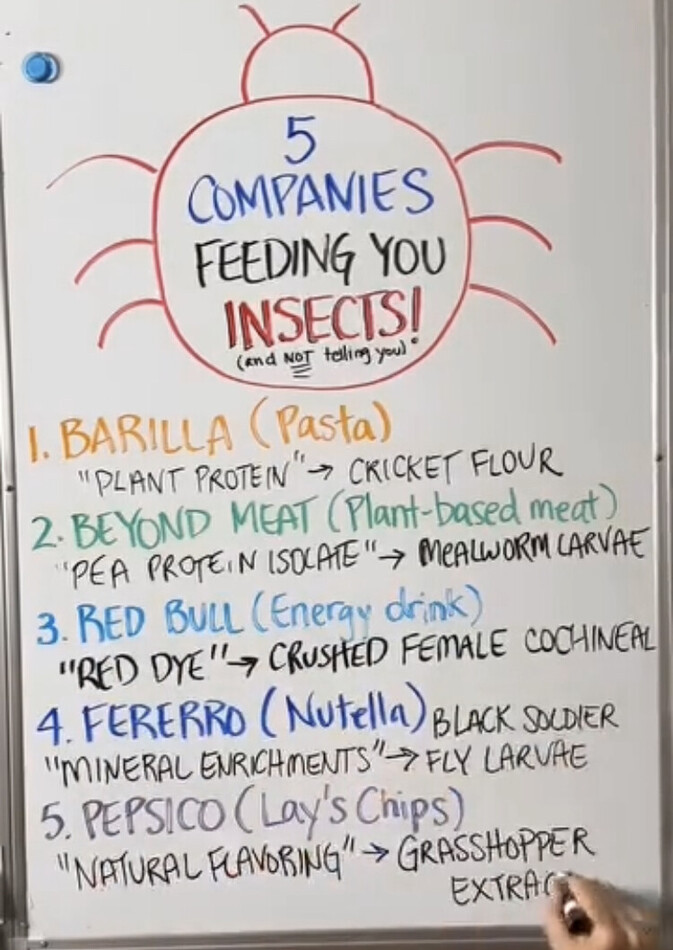 5
COMPANIES
FEEDING YOU
INSECTS!
(and NOT telling you)
1. BARILLA (Pasta)
"PLANT PROTEIN" → CRICKET FLOUR
2. BEYOND MEAT (Plant-based meat)
"PEA PROTEIN ISOLATE" → MEALWORM LARVAE
3. RED BULL (Energy drink)
"RED DYE" → CRUSHED FEMALE COCHINEAL
4. FERERRO (Nutella) BLACK SOLDIER
"MINERAL ENRICHMENTS" → FLY LARVAE
5. PEPSICO (Lay's Chips)
"NATURAL FLAVORING" → GRASSHOPPER
EXTRAC